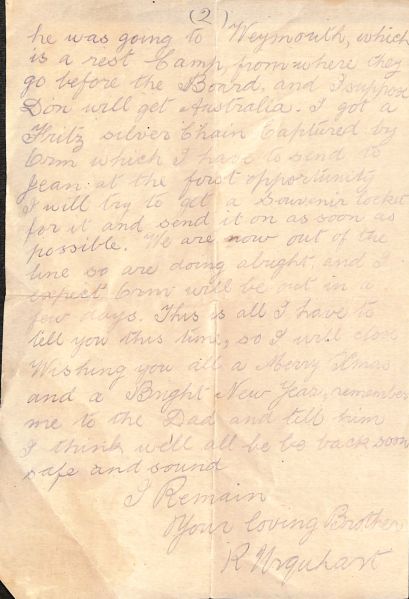 (2)
he was going to Weymouth, which
is a rest Camp, from where they
go before the Board, and I suppose
Don will get Australia. I got a
Fritz silver Chain Captured by
Orm which I have to send to
Jean at the first opportunity
I will try to get a Souvenir locket
for it and send it on as soon as
possible. We are now out of the
line so are doing alright and I
expect Orm will be out in a
few days. This is all I have to
tell you this time, so I will close
Wishing you all a Merry Xmas
and a Bright New Year, remember
me to the Dad and tell him
I think we'll all be back soon
safe and sound
I Remain
Your loving Brother
R Urquhart